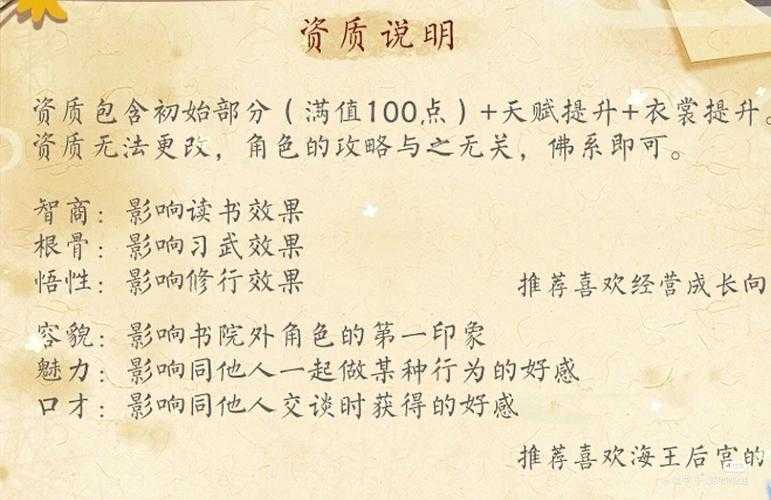 资质说明
资质包含初始部分（满值100点）+天赋提升+衣裳提升。
资质无法更改，角色的攻略与之无关，佛系即可。
智商：影响读书效果
根骨：影响习武效果
悟性：影响修行效果
推荐喜欢经营成长向
容貌：影响书院外角色的第一印象
魅力：影响同他人一起做某种行为的好感
口才：影响同他人交谈时获得的好感
推荐喜欢海王后宫的